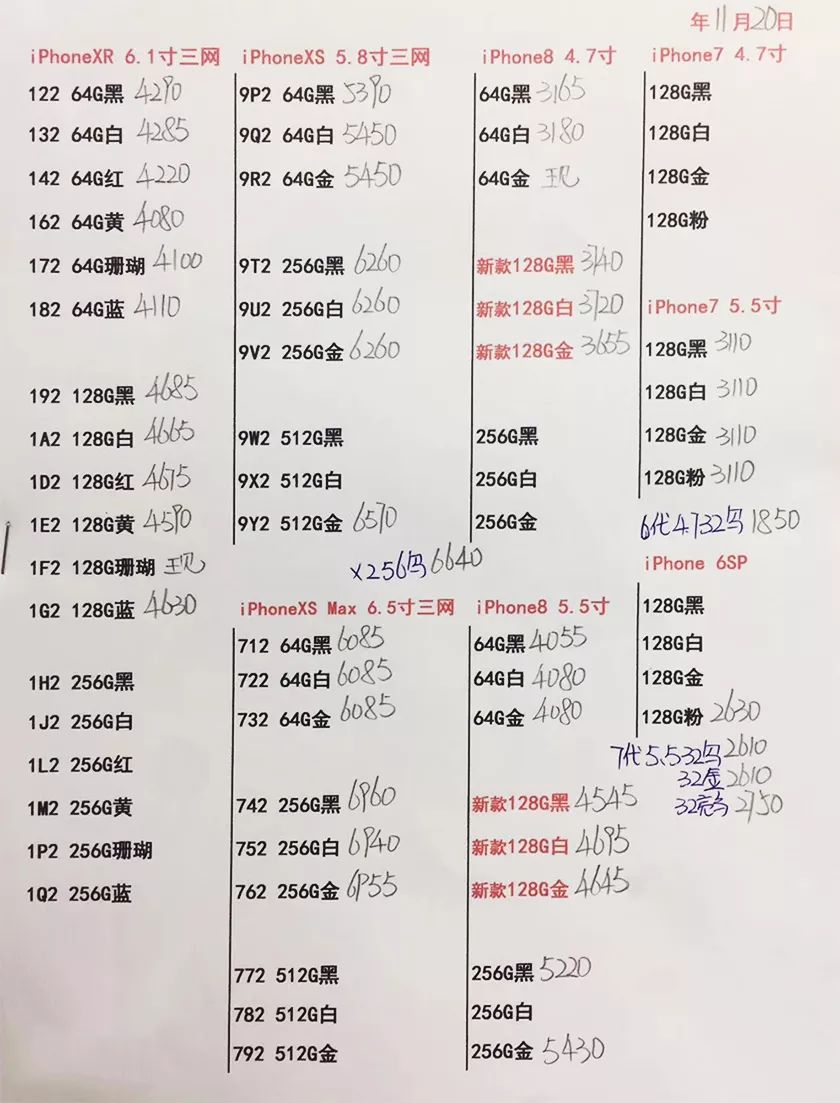 年11月20日
iPhoneXR 6.1寸三网
122 64G黑 4290
132 64G白 4285
142 64G红 4220
162 64G黄 4080
172 64G珊瑚 4100
182 64G蓝 4110
192 128G黑 4685
1A2 128G白 4665
1D2 128G红 4675
1E2 128G黄 4590
1F2 128G珊瑚
1G2 128G蓝 4630
1H2 256G黑
1J2 256G白
1L2 256G红
1M2 256G黄
1P2 256G珊瑚
1Q2 256G蓝
iPhoneXS 5.8寸三网
9P2 64G黑 5390
9Q2 64G白 5450
9R2 64G金 5450
9T2 256G黑 6260
9U2 256G白 6260
9V2 256G金 6260
9W2 512G黑
9X2 512G白
9Y2 512G金 6570
X256 6640
iPhoneXS Max 6.5寸三网
712 64G黑 6085
722 64G白 6085
732 64G金 6085
742 256G黑 6960
752 256G白 6940
762 256G金 6955
772 512G黑
782 512G白
792 512G金
iPhone8 4.7寸
64G黑 3165
64G白 3180
64G金
新款128G黑 3740
新款128G白 3720
新款128G金 3655
256G黑
256G白
256G金
iPhone8 5.5寸
64G黑 4055
64G白 4080
64G金 4080
新款128G黑 4545
新款128G白 4695
新款128G金 4645
256G黑 5220
256G白
256G金 5430
iPhone7 4.7寸
128G黑
128G白
128G金
128G粉
iPhone7 5.5寸
128G黑 3110
128G白 3110
128G金 3110
128G粉 3110
6代4.732 1850
iPhone 6SP
128G黑
128G白
128G金
128G粉 2630
7代5.532 2610
32金 2610
32 2750